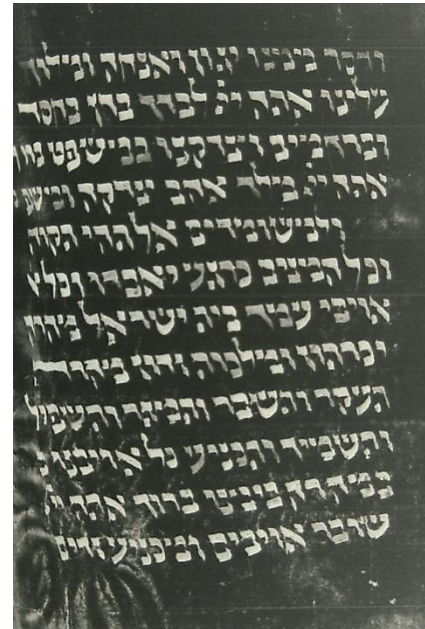 והסר ממנו יגון ואנחה ומלוך
עלינו אתה ייי לבדך בחסד
וברחמים וצדקנו במשפט
אתה יי מלך אהב צדקה ומשפ
ולמשומדים אל תהי תקוה
וכל המינים כרגע יאבדו וכל
אויבי עמך בית ישראל מהרה
יכרתו ומלכות זדון מהרה
תעקר ותשבר ותמגר
ותשמיד ותכניע כל אויבנו
במהרה בימינו ברוך אתה יי
שובר אויבים ומכניע זדים